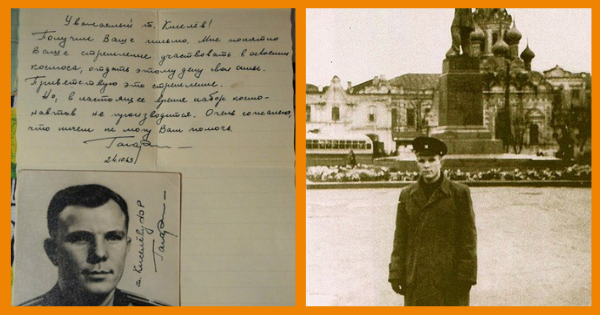 Уважаемый т. Киселёв!
Получил Ваше письмо. Мне понятно
Ваше стремление участвовать в освоении
космоса, отдать этому делу свои силы.
Приветствую это стремление.
Но, в настоящее время набор космо-
навтов не производится. Очень сожалею,
что ничем не могу Вам помочь.
Гагарин
т. Киселёву
Гагарин